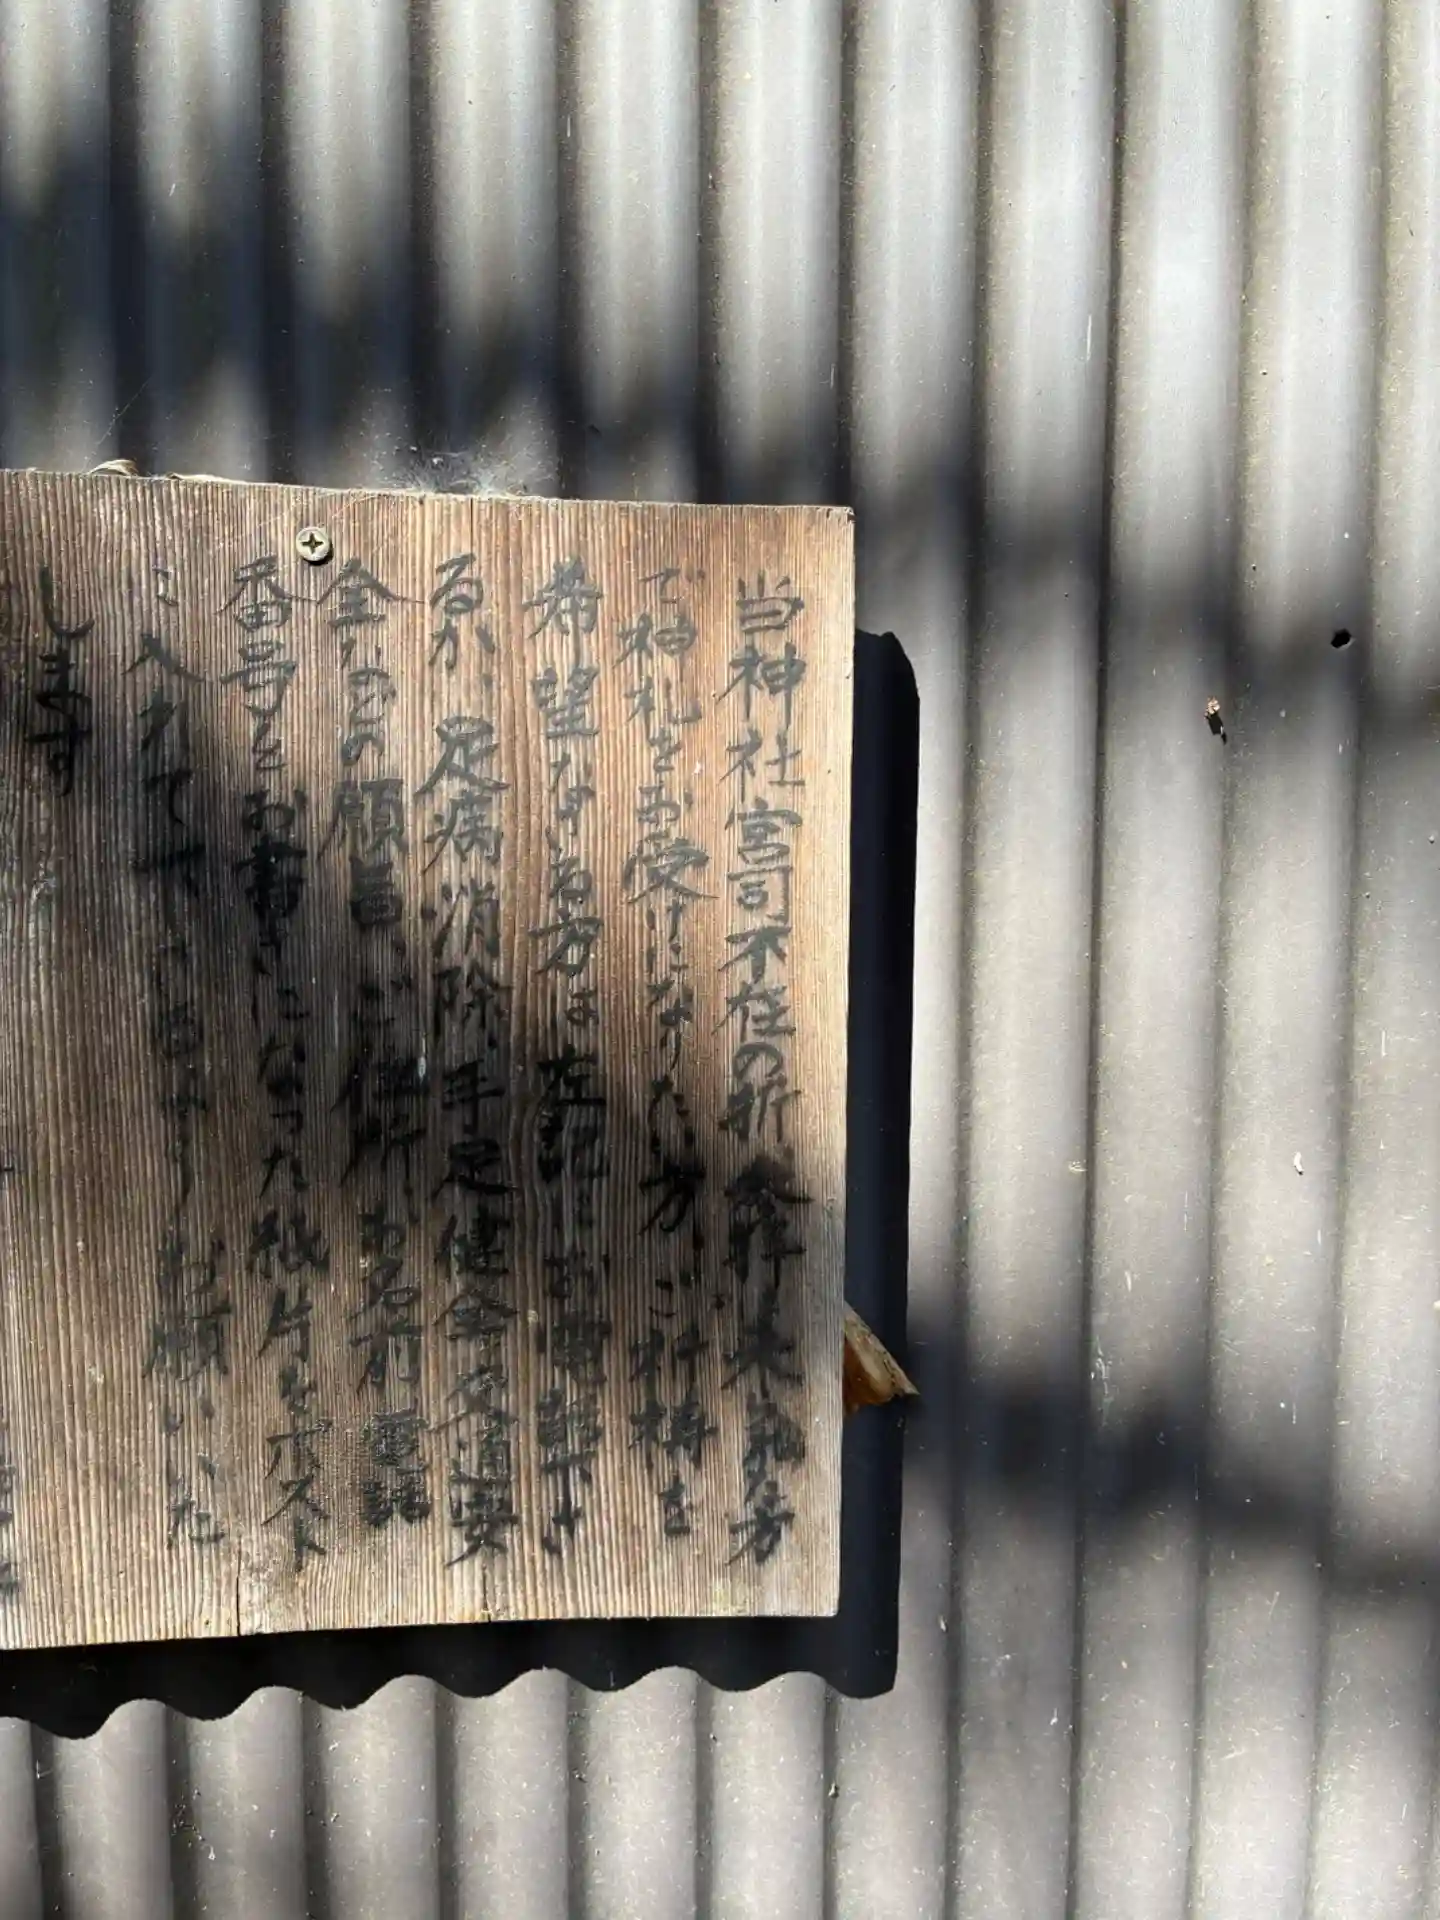 当神社宮司不在の折、参拝者の方
で神札をお受けになりたい方、ご祈祷を
希望なさる方は左記にお電話下さ
るか、足病消除、手足健全、交通安
全などの願旨、ご住所、お名前、電話
番号をお書きになった紙片をポスト
に入れて下さいますようお願いいた
します